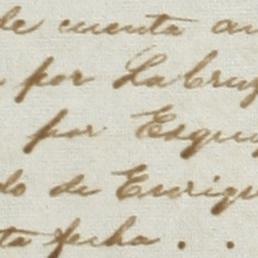 de cuenta an
por La Cruz
por Esqu
do de Enriqu
ta fecha . .